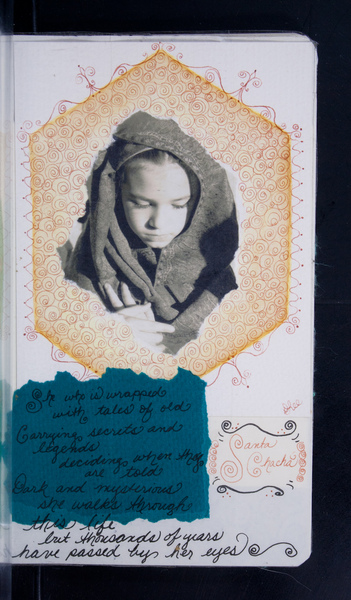 She who is wrapped
with tales of old
Carrying secrets and
legends
deciding when they
are told
Dark and mysterious
she walks through
this life
but thousands of years
have passed by her eyes
Santa
Chacha